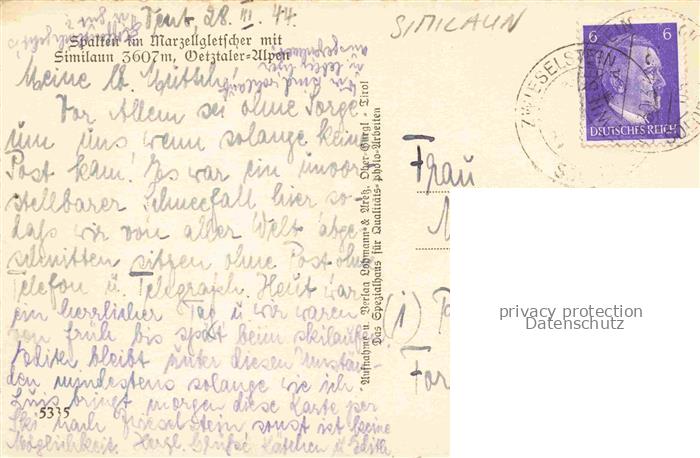 Vent 28. III. 44.
SIMILAUN
Spalten im Marzellgletscher mit
Similaun 3607m, Oetztaler-Alpen
Meine lb. Mutterl,
Vor Allem sei ohne Sorge
um uns wenn solange kein
Post kam! Es war ein unvor
stellbarer Schneefall hier so
daß wir von aller Welt abge
schnitten sitzen ohne Post ohne
Telefon u. Telegrafen. Heut war
ein herrlicher Tag u wir waren
von früh bis spät beim skilaufen
Edith bleibt unter diesen Umstän
den mindestens solange wie ich
Luis bringt morgen diese Karte per
Ski nach Zwieselstein sonst ist keine
Möglichkeit. Herzl. Grüße Katchen u Edith
5335
Aufnahme u. Verlag Lohmann & Aretz, Ober-Gurgl - Tirol
Das Spezialhaus für Qualitäts-Photo-Arbeiten
6 6
DEUTSCHES REICH
ZWIESELSTEIN
Frau
(i)
privacy protection
Datenschutz